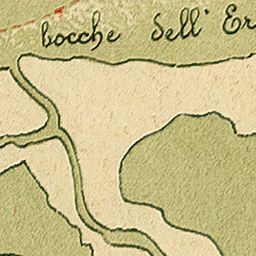 bocche dell' Er